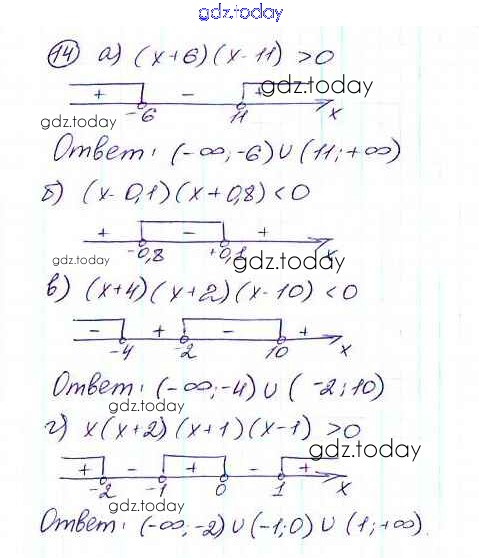 gdz.today
14 а) (x+6)(x-11) >0
+ - +
gdz.today
-6 11 x
gdz.today
Ответ: (-∞;-6)∪(11;+∞)
gdz.today
б) (x-0,1)(x+0,8)<0
+ - +
-0,8 +0,1 x
gdz.today
gdz.today
в) (x+4)(x+2)(x-10)<0
- + - +
-4 -2 10 x
gdz.today
Ответ: (-∞;-4)∪(-2;10)
gdz.today
г) x(x+2)(x+1)(x-1) >0
gdz.today
+ - + - +
-2 -1 0 1 x
gdz.today
Ответ: (-∞;-2)∪(-1;0)∪(1;+∞)
gdz.today